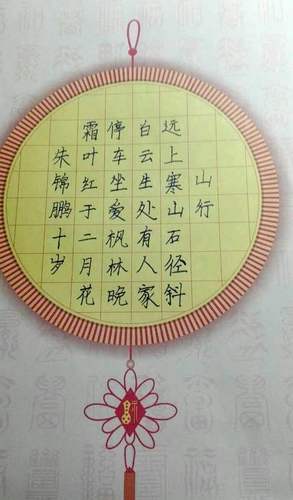 山行
远上寒山石径斜
白云生处有人家
停车坐爱枫林晚
霜叶红于二月花
朱锦鹏十岁